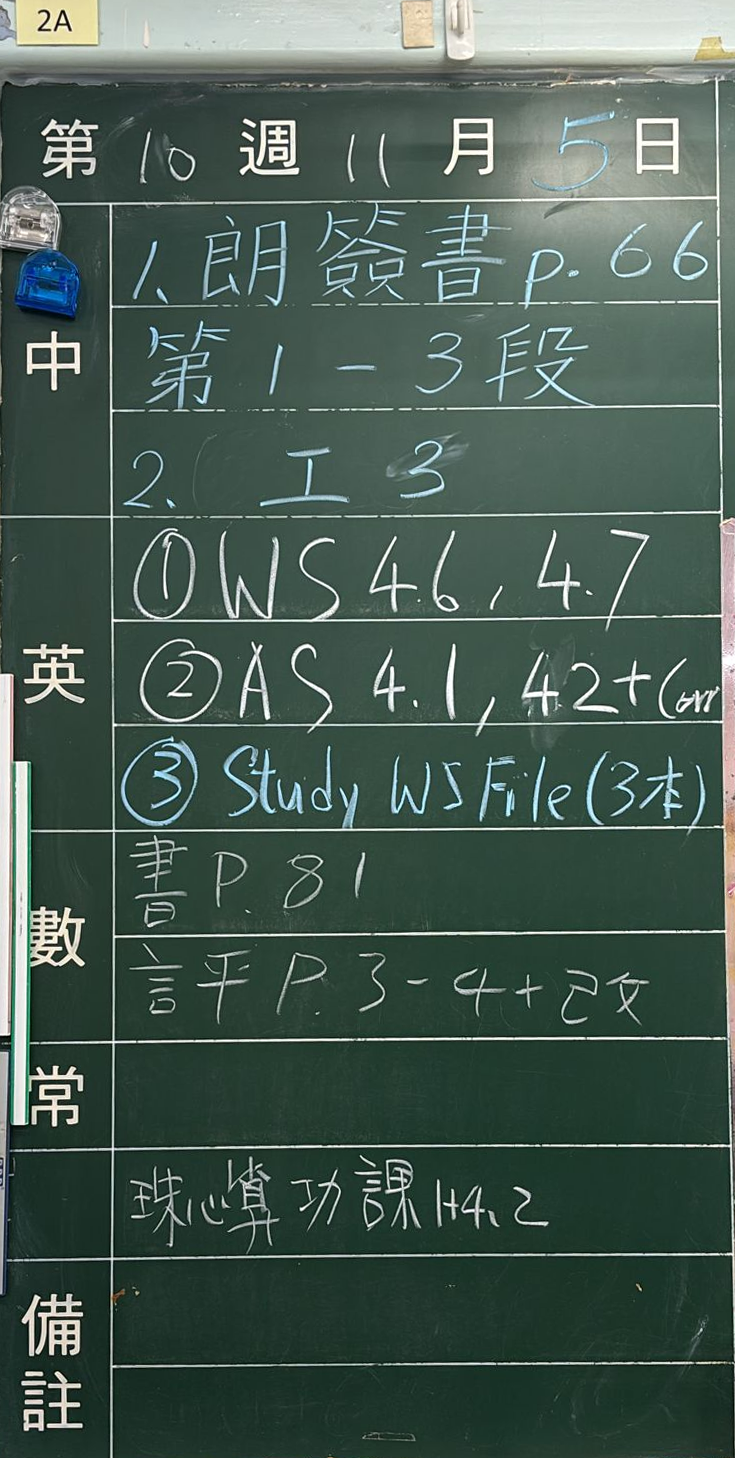 2A
第 10 週 11 月 5 日
中
1、朗簽書 p.66
第 1 - 3 段
2、 工 3
英
① WS 4.6, 4.7
② AS 4.1, 4.2 + Corr
③ Study WS File (3本)
數
書 P. 81
評 P. 3-4 + 改
常
珠心算功課 1+4、2
備註